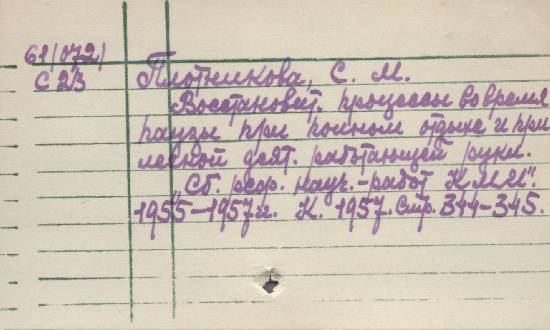 61(072)
С 23
Плотникова, С. М.
Восстановит. процессы во время
паузы при полном отдыхе и при
легкой деят. работающей руки.
"Сб. реф. науч.-работ К.М.И".
1955–1957гг. К. 1957. Стр. 344–345.